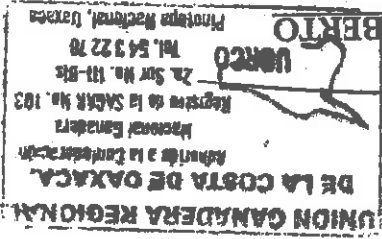 UNION GANADERA REGIONAL
DE LA COSTA DE OAXACA.
Adherida a la Confederación
Nacional Ganadera
Registro de la SAGAR No. 103
2a. Sur No. 111-Bis
Tel. 54 3 22 70
Pinotepa Nacional, Oaxaca
UGRCO
BERTO